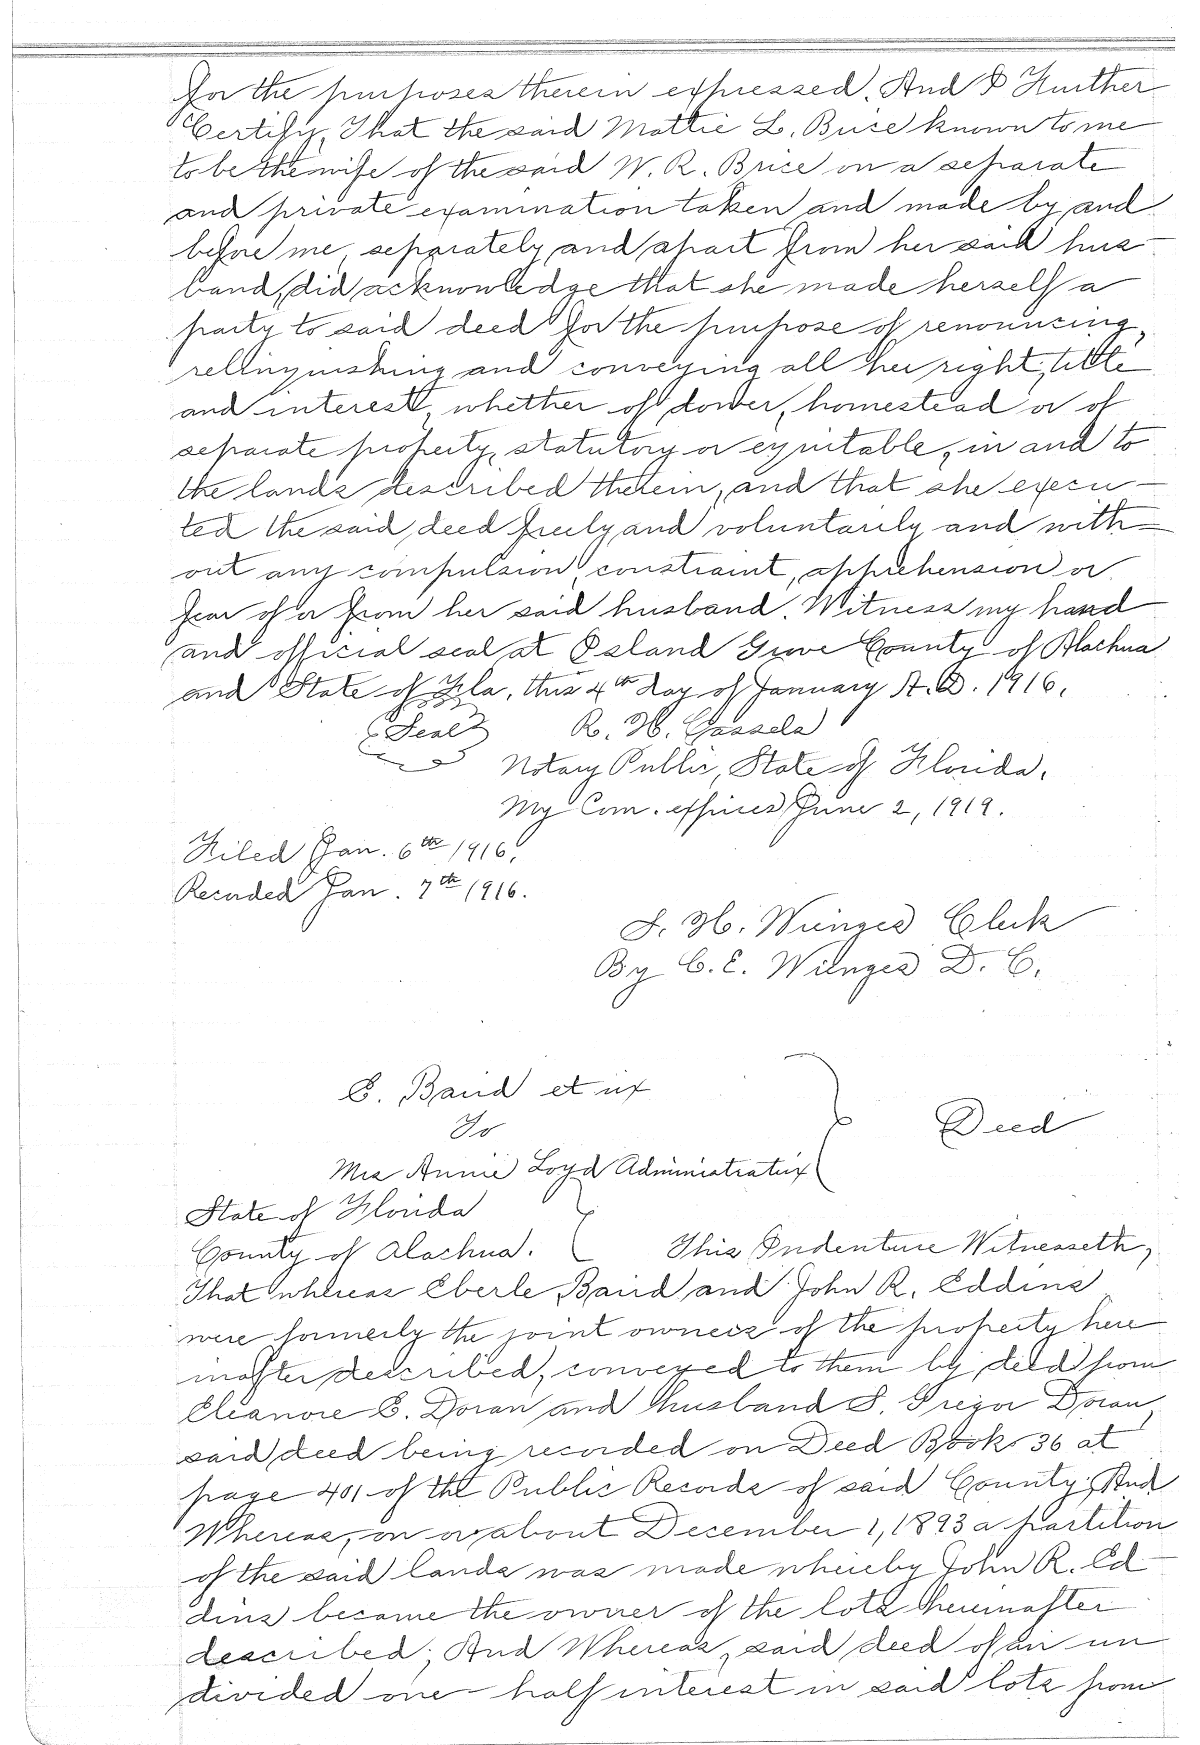 for the purposes therein expressed. And I Further
Certify, That the said Mattie L. Brice known to me
to be the wife of the said W. R. Brice on a separate
and private examination taken and made by and
before me, separately and apart from her said hus-
band, did acknowledge that she made herself a
party to said deed for the purpose of renouncing,
relinquishing and conveying all her right, title
and interest, whether of dower, homestead or of
separate property, statutory or equitable, in and to
the lands described therein, and that she execu-
ted the said deed freely and voluntarily and with-
out any compulsion, constraint, apprehension or
fear of or from her said husband. Witness my hand
and official seal at Island Grove County of Alachua
and State of Fla, this 4th day of January A.D. 1916.
(Seal) R. H. Gassels
Notary Public, State of Florida.
My Com. expires June 2, 1919.
Filed Jan. 6th 1916,
Recorded Jan. 7th 1916.
S. H. Wienges Clerk
By C. E. Wienges D. C.
E. Baird et ux
To
Mrs Annie Loyd Administratrix
Deed
State of Florida
County of Alachua. This Indenture Witnesseth,
That whereas Eberle Baird and John R. Eddins
were formerly the joint owners of the property here
inafter described, conveyed to them by deed from
Eleanore E. Doran and husband S. Gregor Doran,
said deed being recorded on Deed Book 36 at
page 401 of the Public Records of said County; And
Whereas, on or about December 1, 1893 a partition
of the said lands was made whereby John R. Ed-
dins became the owner of the lots hereinafter
described; And Whereas, said deed of an un
divided one-half interest in said lots from